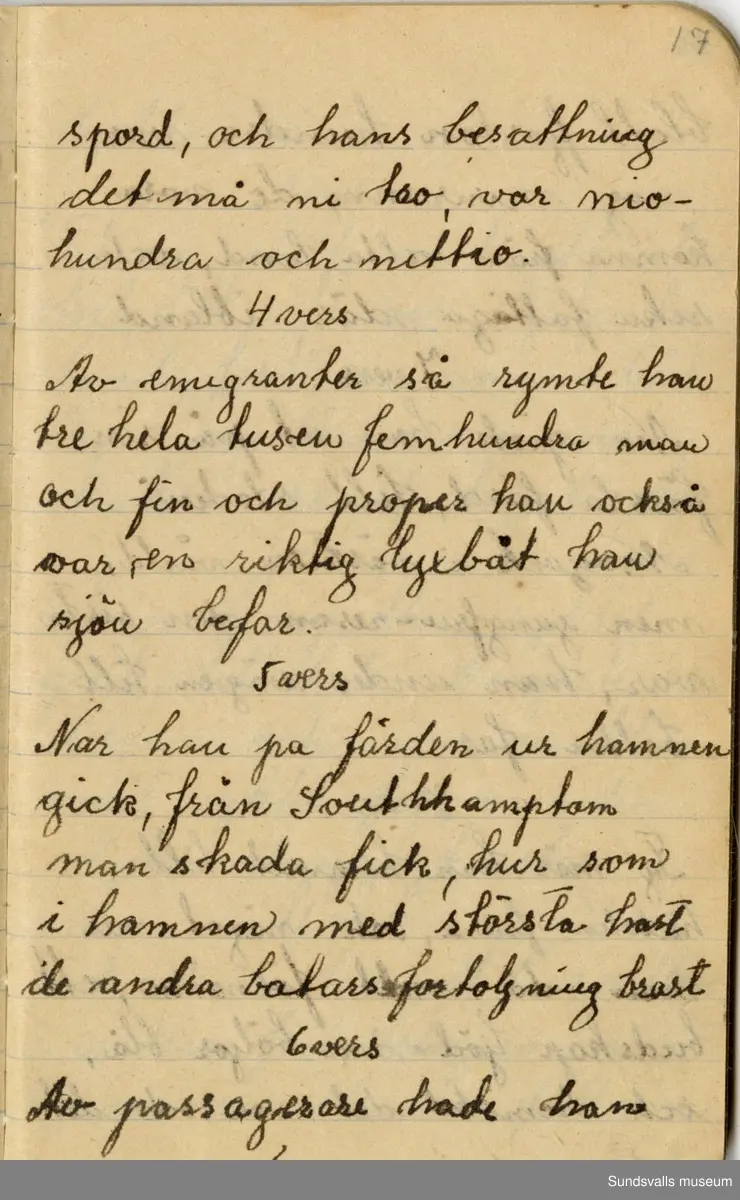 17
spord, och hans besattning
det må ni tro, var nio-
hundra och nittio.
4 vers
Av emigranter så rymte han
tre hela tusen femhundra man
och fin och proper han också
var, en riktig lyxbåt han
sjön befar.
5 vers
Nar han pa färden ur hamnen
gick, från Southhamptom
man skada fick, hur som
i hamnen med största hast
de andra batars fortojning brast
6 vers
Av passagerare hade han
Sundsvalls museum